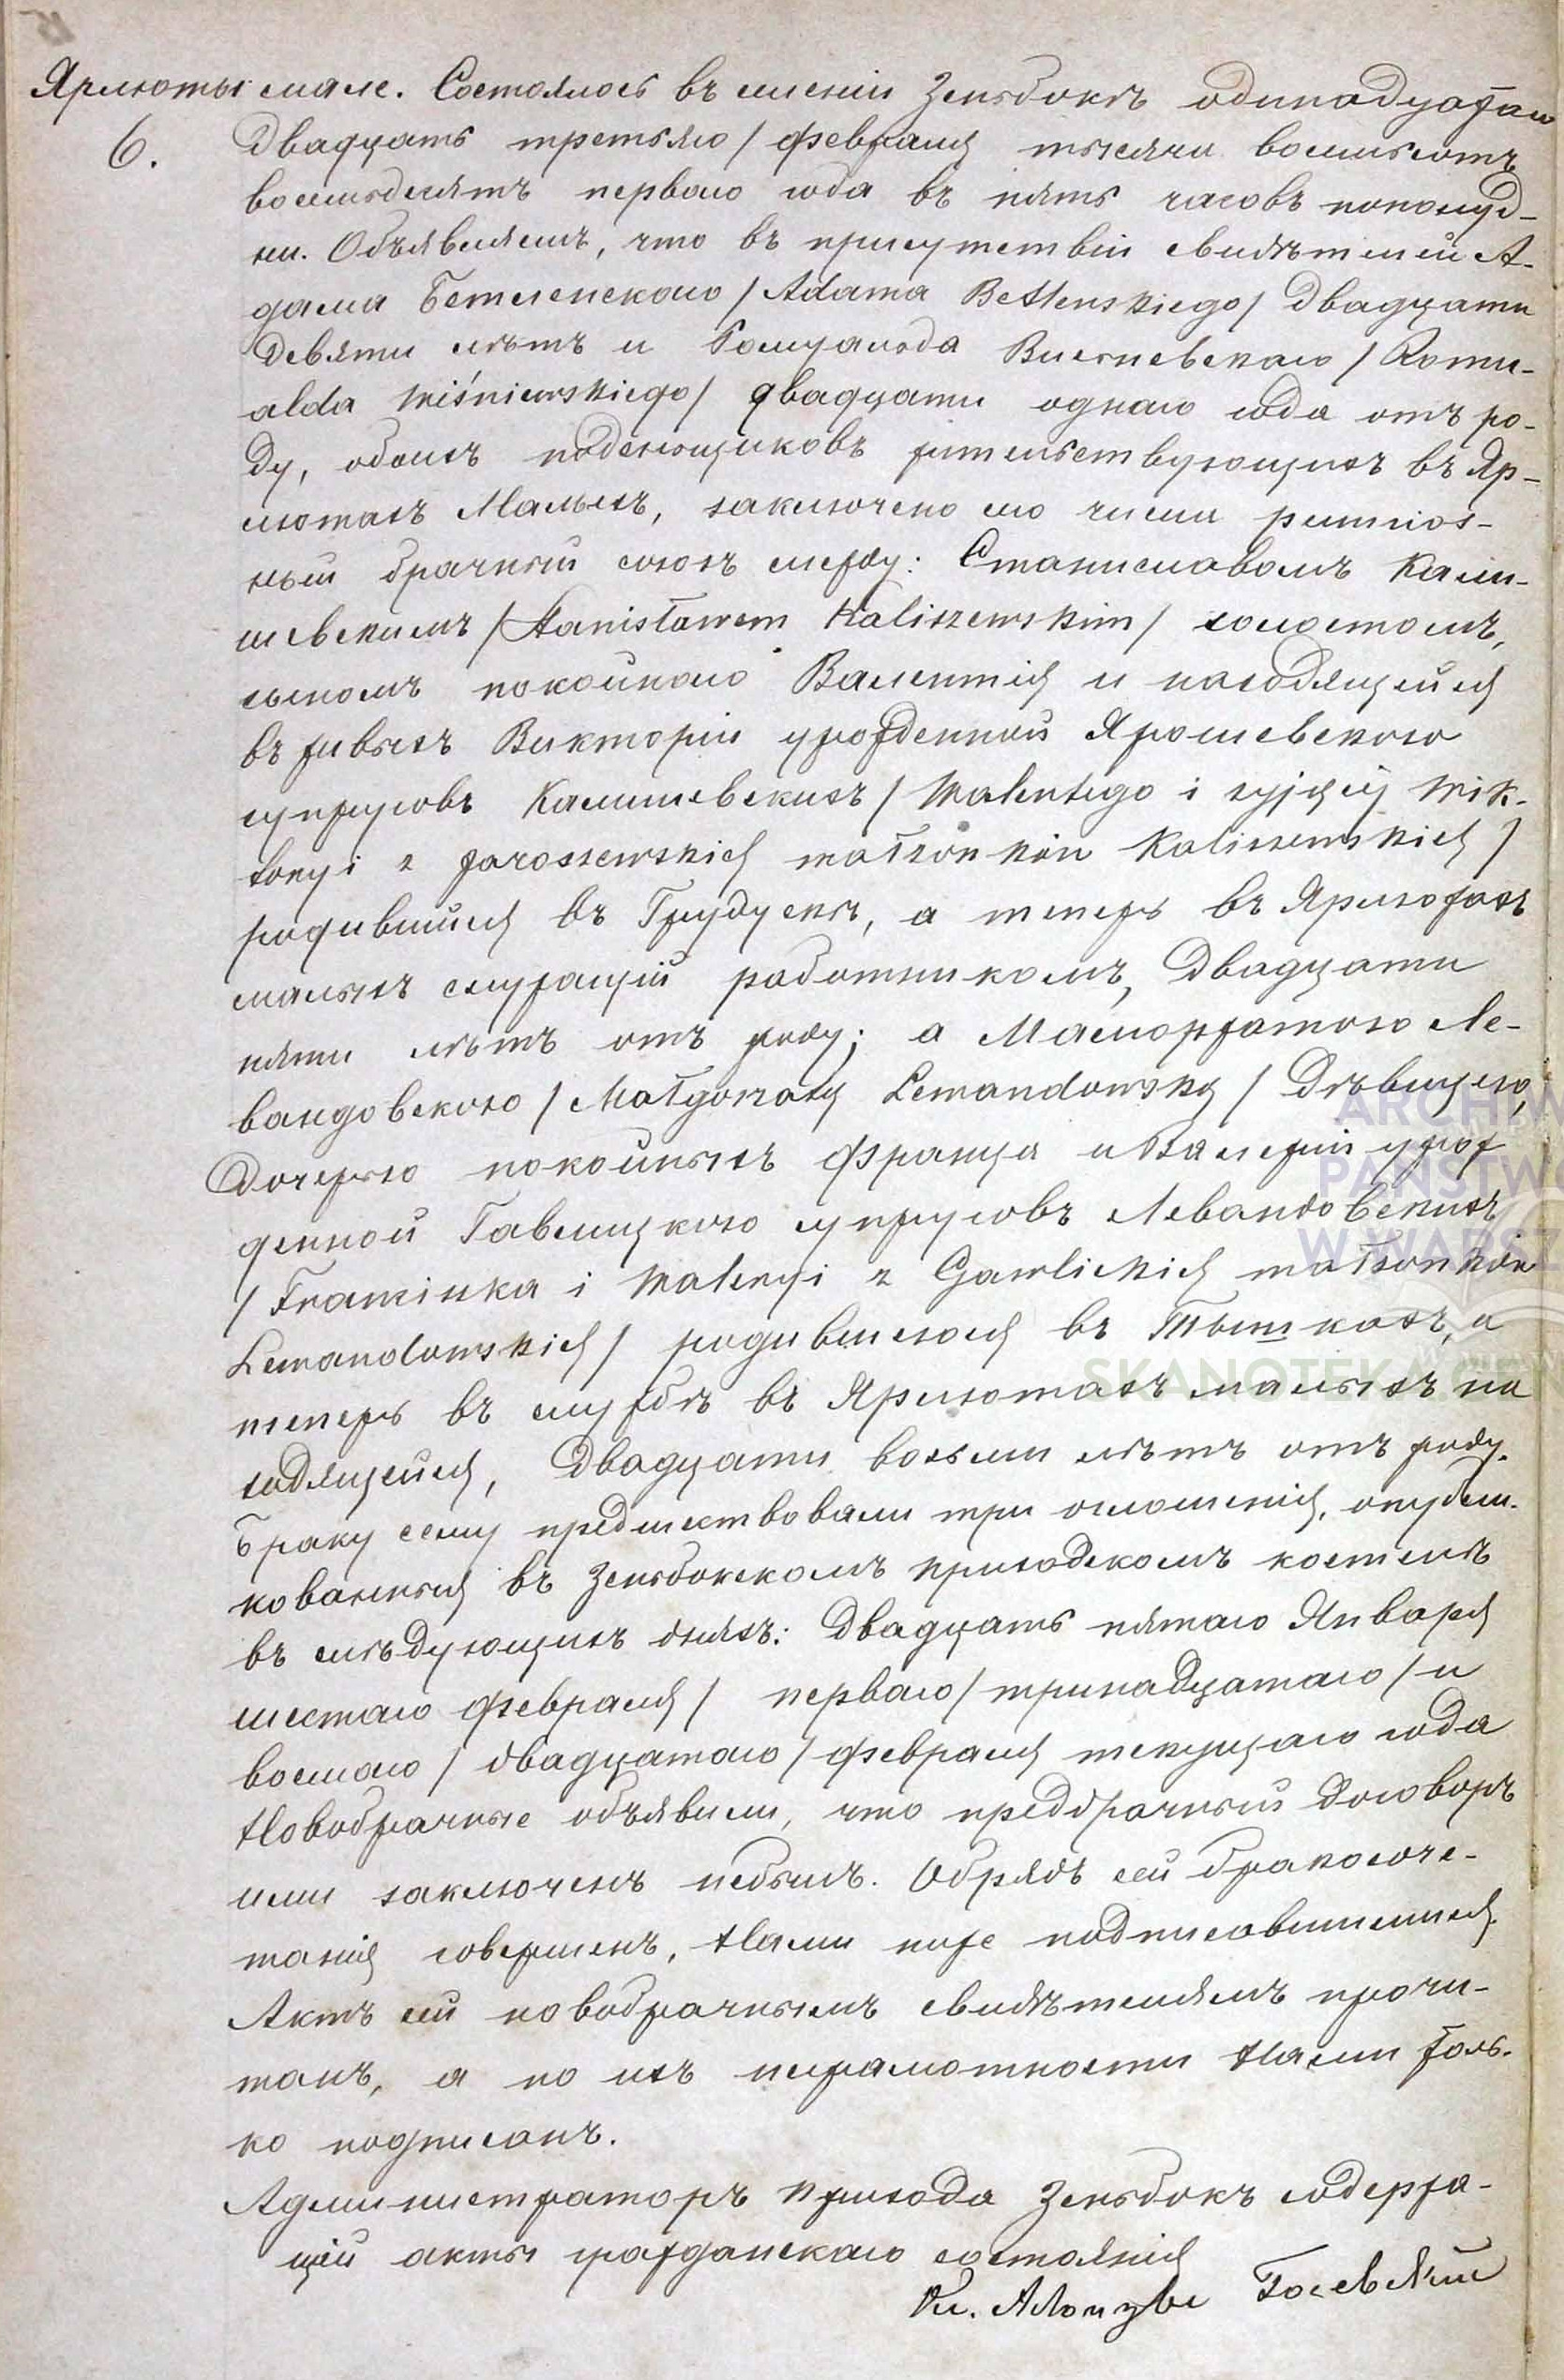 Ярлюты мале. Состоялось въ имѣніи Зеньбокъ одинадцатаго
6. двадцать третьяго / февраля тысяча восемьсотъ
восемьдесятъ перваго года въ пять часовъ пополуд-
ни. Объявляемъ, что въ присутствіи свидѣтелей А-
дама Бетленскаго / Adama Betlenskiego / двадцати
девяти лѣтъ и Ромуальда Висьневскаго / Romu-
alda Wiśniewskiego / двадцати однаго года отъ ро-
ду, обоихъ поденщиковъ жительствующихъ въ Яр-
лютахъ Малыхъ, заключено сего числа религіоз-
ный брачный союзъ между: Станиславомъ Кали-
шевскимъ / Stanisławem Kaliszewskim / холостомъ,
сыномъ покойнаго Валентія и находящейся
въ живыхъ Викторіи урожденной Ярошевскихъ
супруговъ Калишевскихъ / Walentego i żyjącej Wik-
toryi z Jaroszewskich małżonków Kaliszewskich /
родившийся въ Грудускѣ, а теперь въ Ярлютахъ
малыхъ служащій работникомъ, двадцати
пяти лѣтъ отъ роду; а Малгоржатою Ле-
вандовскою / Małgorzatą Lewandowską / дѣвицею,
дочерью покойныхъ Франца и Валеріи урож
денной Гавлицкихъ супруговъ Левандовскихъ
/ Franciszka i Waleryi z Gawlickich małżonków
Lewandowskich / родившеюся въ Тышкахъ, а
теперь въ службѣ въ Ярлютахъ малыхъ на
ходящейся, двадцати восьми лѣтъ отъ роду.
Браку сему предшествовали три оглошенія, опубли-
кованныя въ Зеньбокскомъ приходскомъ костелѣ
въ слѣдующихъ дняхъ: двадцать пятаго Января
шестаго февраля / перваго / тринадцатаго / и
восмаго / двадцатаго / февраля текущаго года
Новобрачные объявили, что предбрачный договоръ
ими заключенъ небылъ. Обрядъ сей бракосоче-
танія совершенъ, Нами ниже подписавшимися.
Актъ сей новобрачнымъ свидѣтелямъ прочи-
танъ, а по ихъ неграмотности Нами толь-
ко подписанъ.
Администраторъ прихода Зеньбокъ содержа-
щій акты гражданскаго состоянія
Кс.
ARCHIW
PAŃSTW
W WARSZ
SKANOTEKA.GEN